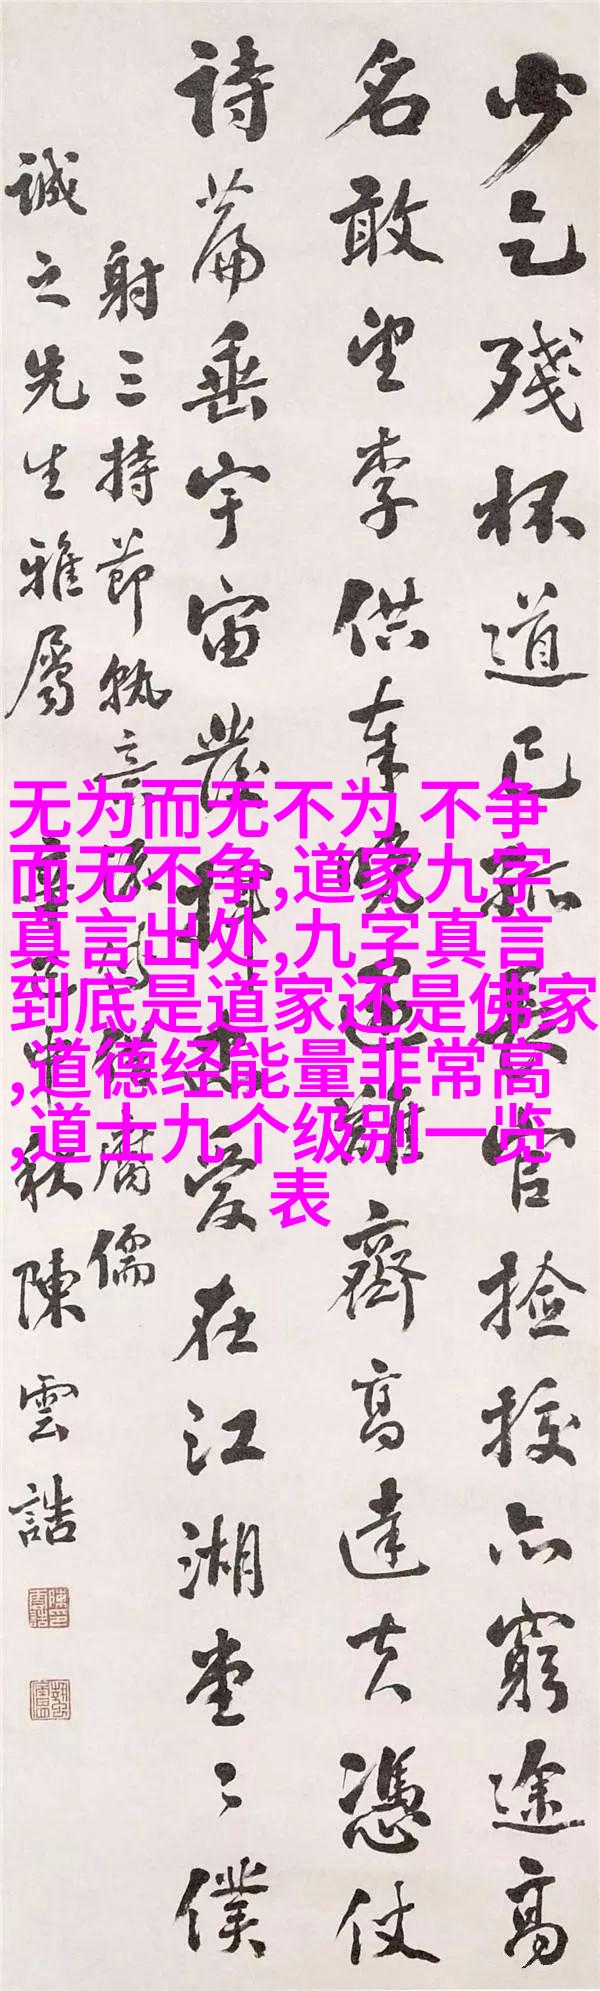 少乞殘杯道已孤長官捡挍亦窮途高
名敢望李供奉晚遇難齊高達夫憑仗
詩篇垂宇宙發揮忠愛在江湖堂〻僕
射三持節孰意腐儒
誠之先生雅屬
中秋陳雲誥
无为而无不为 不争
而无不争,道家九字
真言出处,九字真言
到底是道家还是佛家
,道德经能量非常高
,道士九个级别一览
表